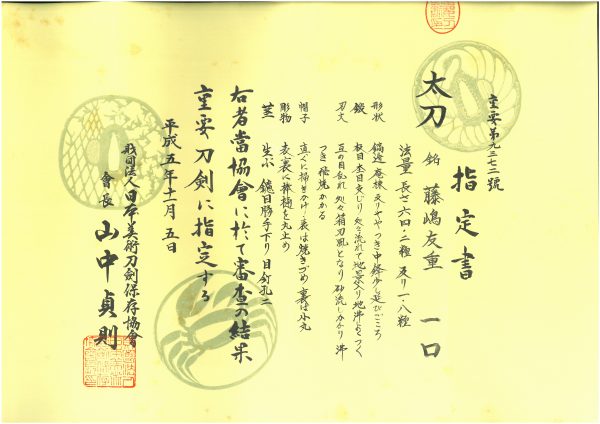 重要第九三七二號
指定書
太刀 銘 藤嶋友重 一口
法量 長さ六〇・二糎 反り一・八糎
形状 鎬造 庵棟 反りやゝつき中鋒少し延びごころ
鍛 板目杢目交じり 処々流れて地景入り地沸よくつく
刃文 互の目乱れ 処々箱刃風となり 砂流しかかり 沸
つき 飛焼かかる
帽子 直ぐに掃きかけ 表は焼きづめ 裏は小丸
彫物 表裏に棒樋を丸止め
茎 生ぶ 鑢目勝手下り 目釘孔二
右者當協會に於て審査の結果
重要刀剣に指定する
平成五年十一月五日
財団法人日本美術刀劍保存協會
會長 山中貞則